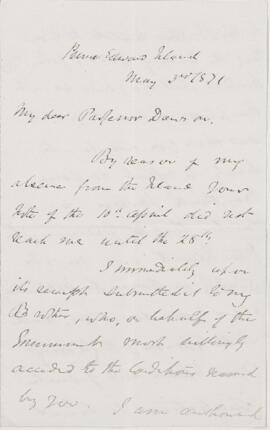 Prince Edward Island
May 3rd 1871
My dear Professor Dawson.
By reason of my
absence from the Island your
Note of the 10th April did not
reach me until the 28th.
I immediately upon
its receipt submitted it to my
who, on behalf of the
Government most willingly
acceded to the Conditions named
by you. I am authorized